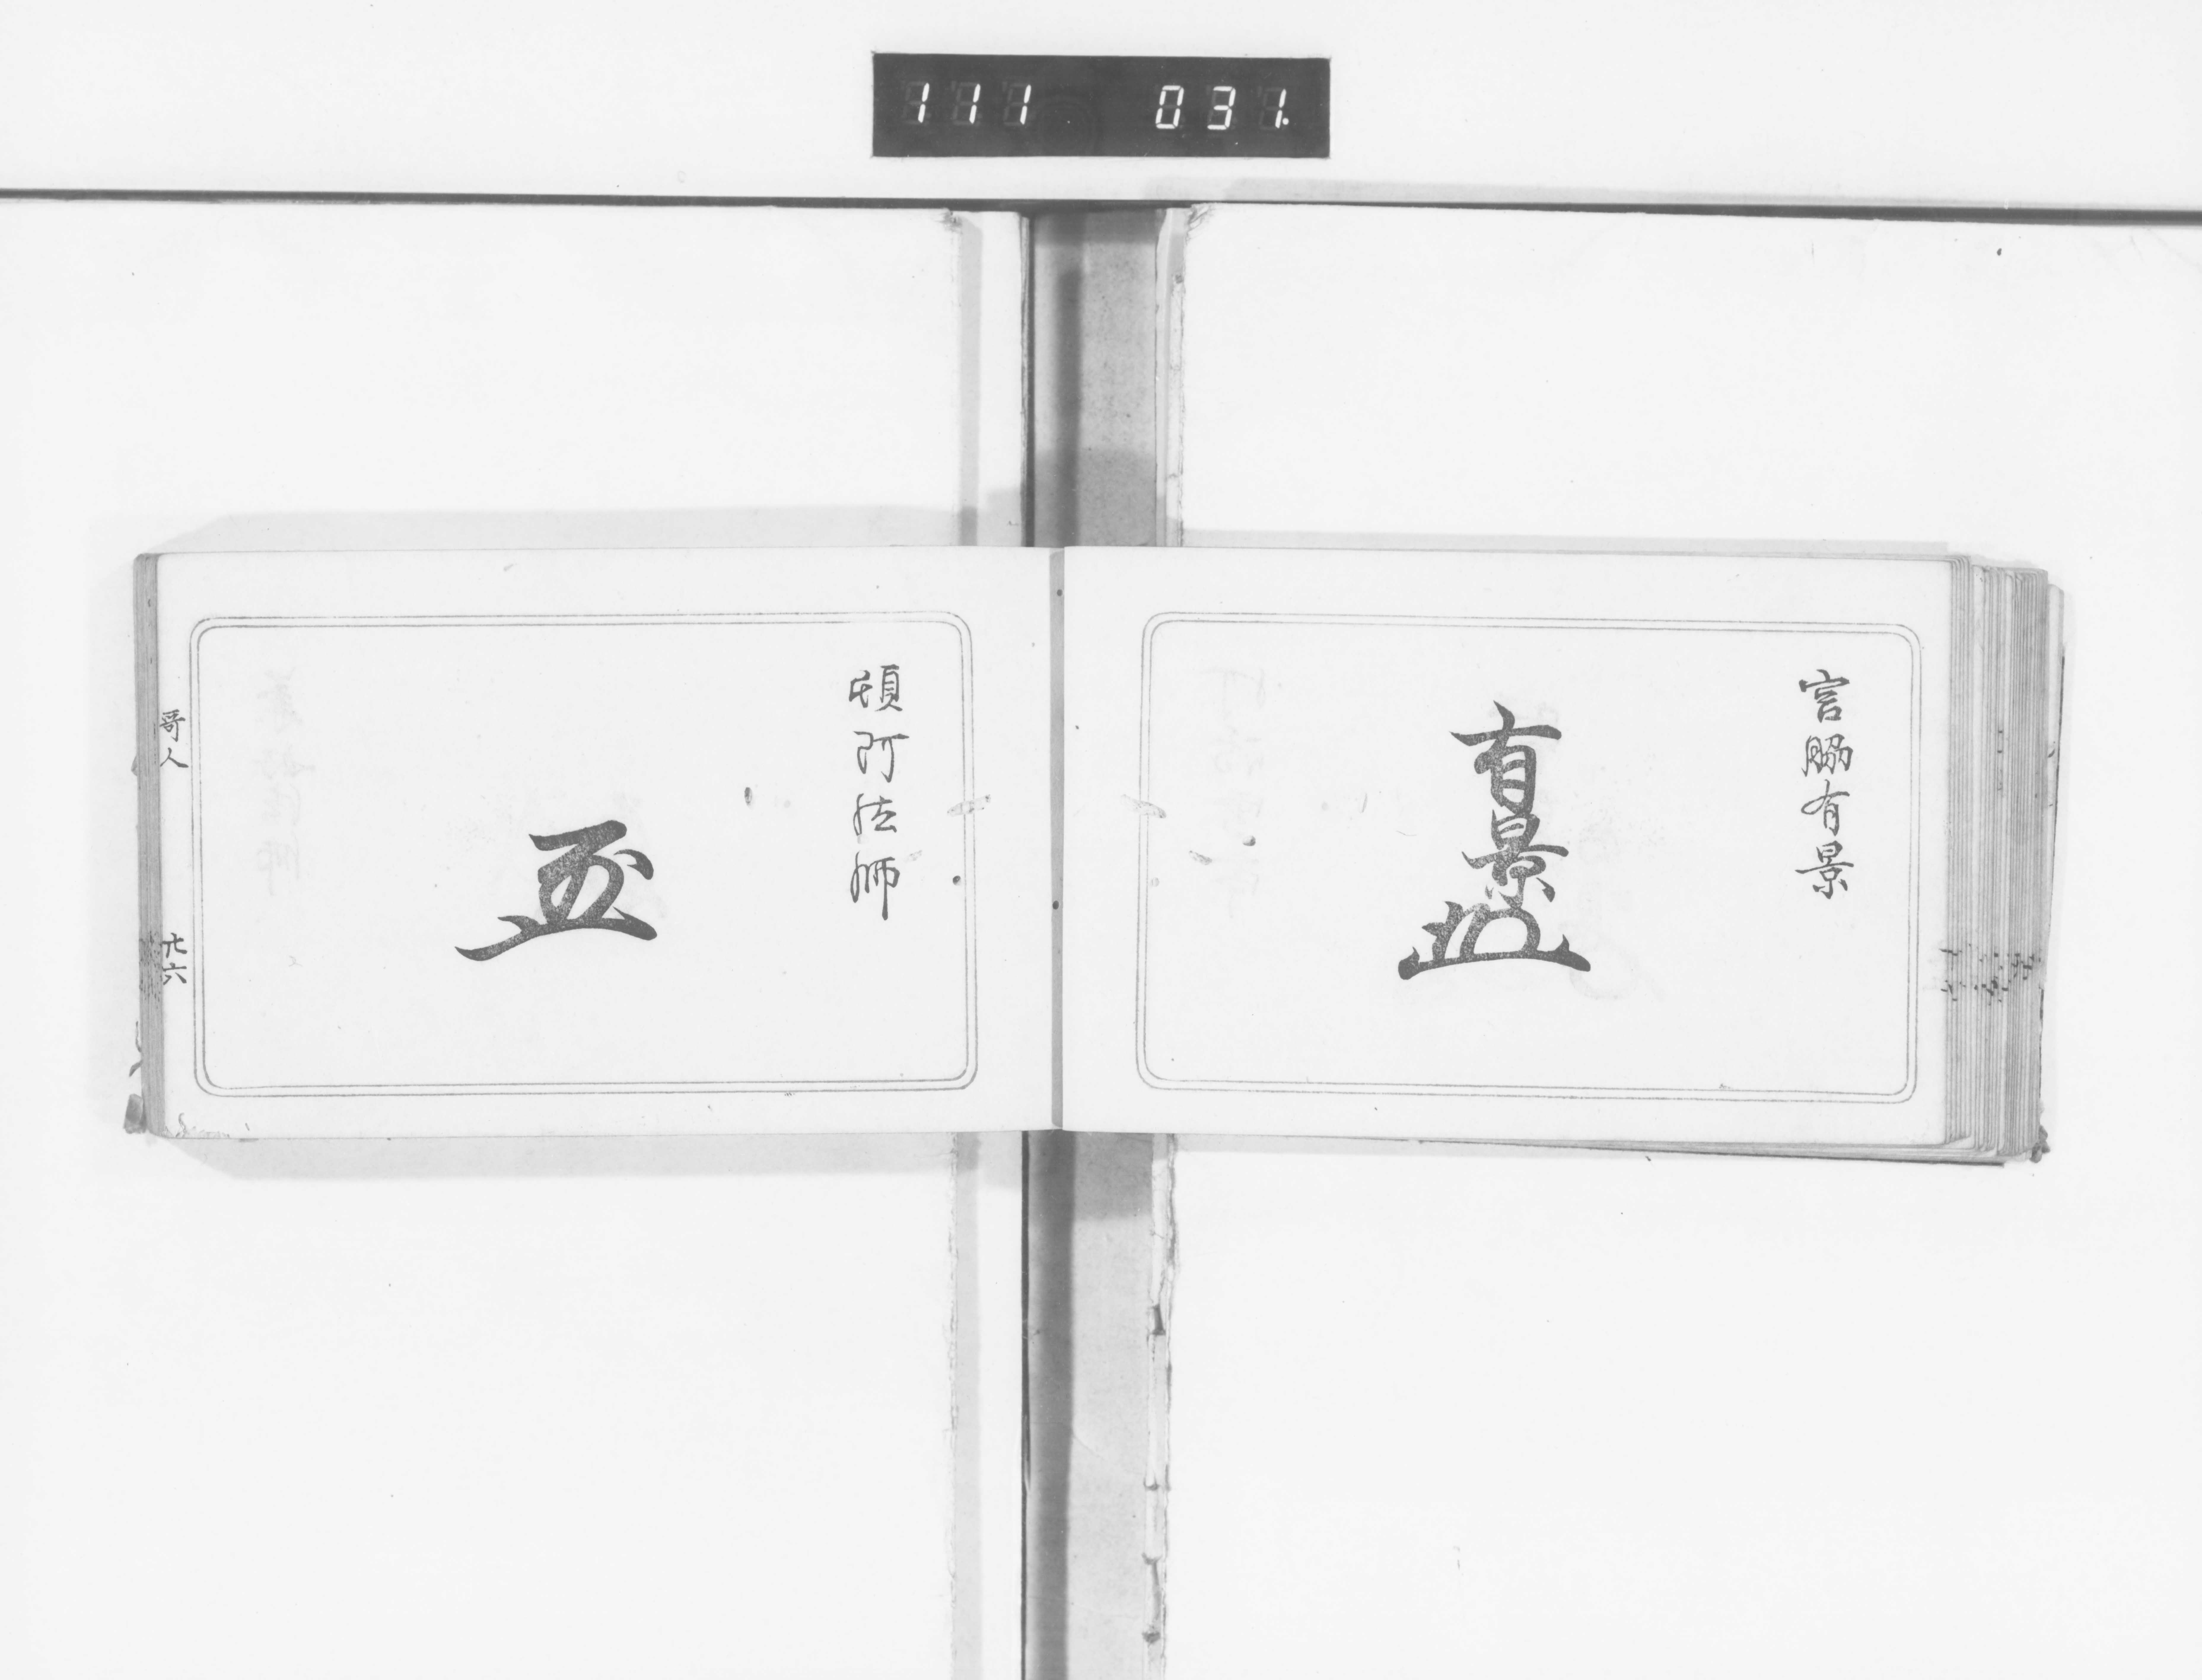 111 031.
宮脇有景
有景
頓阿法師
哥人
廿六